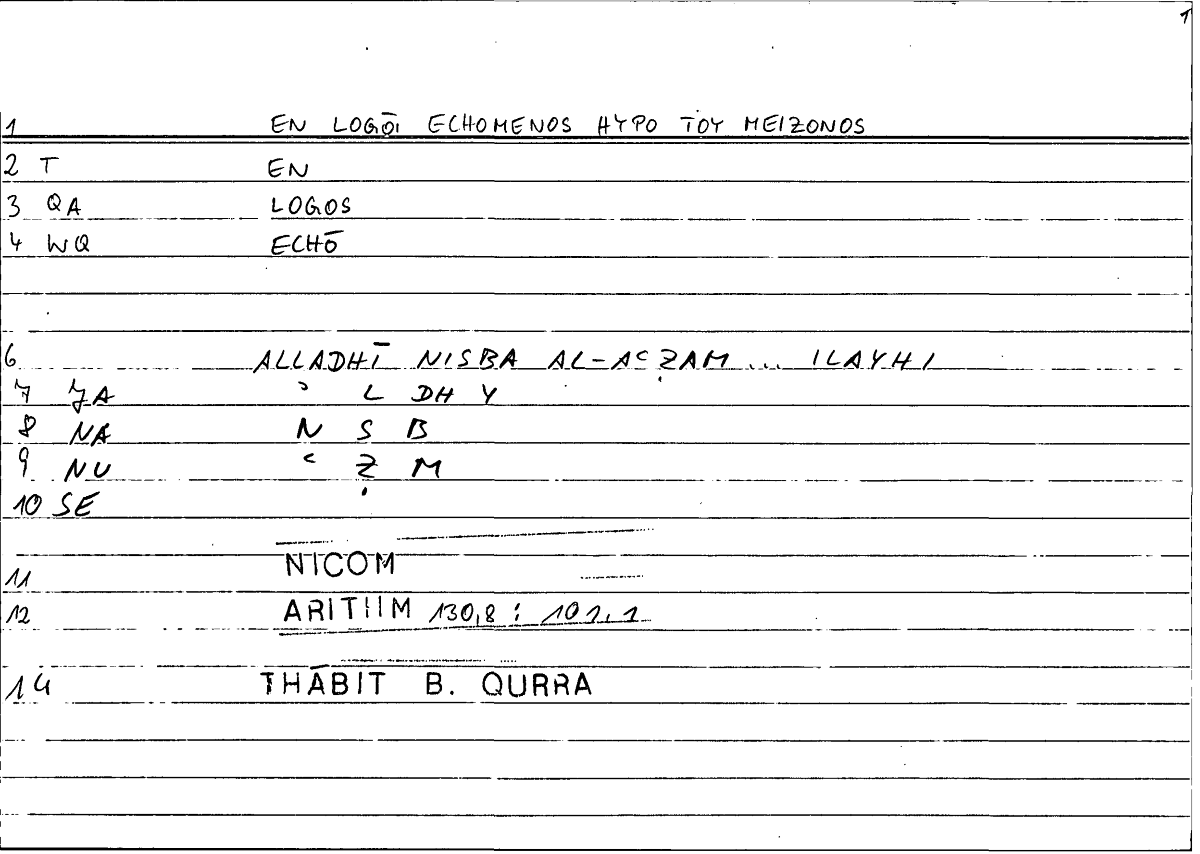 1
1 EN LOGŌI ECHOMENOS HYPO TOY MEIZONOS
2 T EN
3 QA LOGOS
4 WQ ECHŌ
6 ALLADHĪ NISBA AL-AʿẒAM ... ILAYHI
7 JA ʾ L DH Y
8 NA N S B
9 NU ʿ Ẓ M
10 SE
11 NICOM
12 ARITHM 130,8 : 101,1
14 THĀBIT B. QURRA